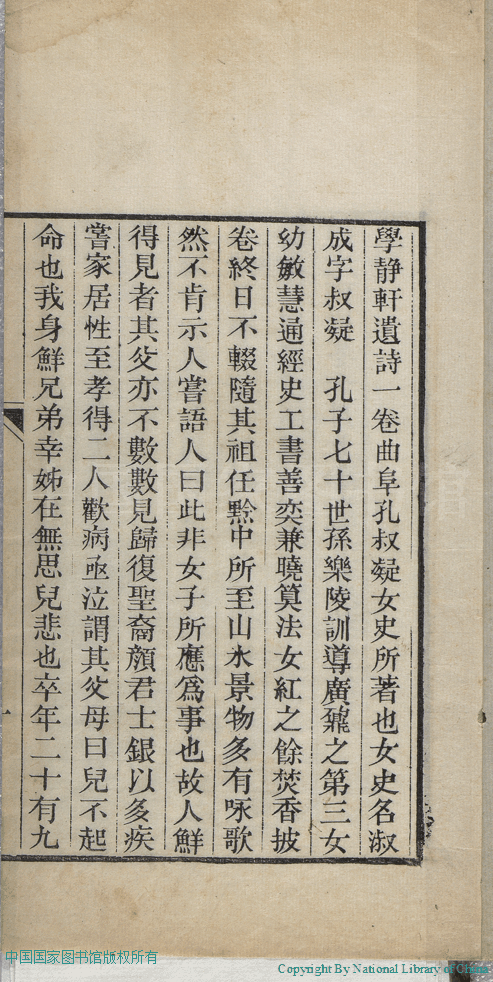 學静軒遺詩一卷曲阜孔叔凝女史所著也女史名淑
成字叔凝　孔子七十世孫樂陵訓導廣㲄之第三女
幼敏慧通經史工書善奕兼曉筭法女紅之餘焚香披
卷終日不輟隨其祖任黔中所至山水景物多有咏歌
然不肯示人嘗語人曰此非女子所應爲事也故人鮮
得見者其父亦不數數見歸復聖裔顔君士銀以多疾
嘗家居性至孝得二人歡病亟泣謂其父母曰兒不起
命也我身鮮兄弟幸姊在無思兒悲也卒年二十有九
一
中国国家图书馆版权所有
Copyright By National Library of China